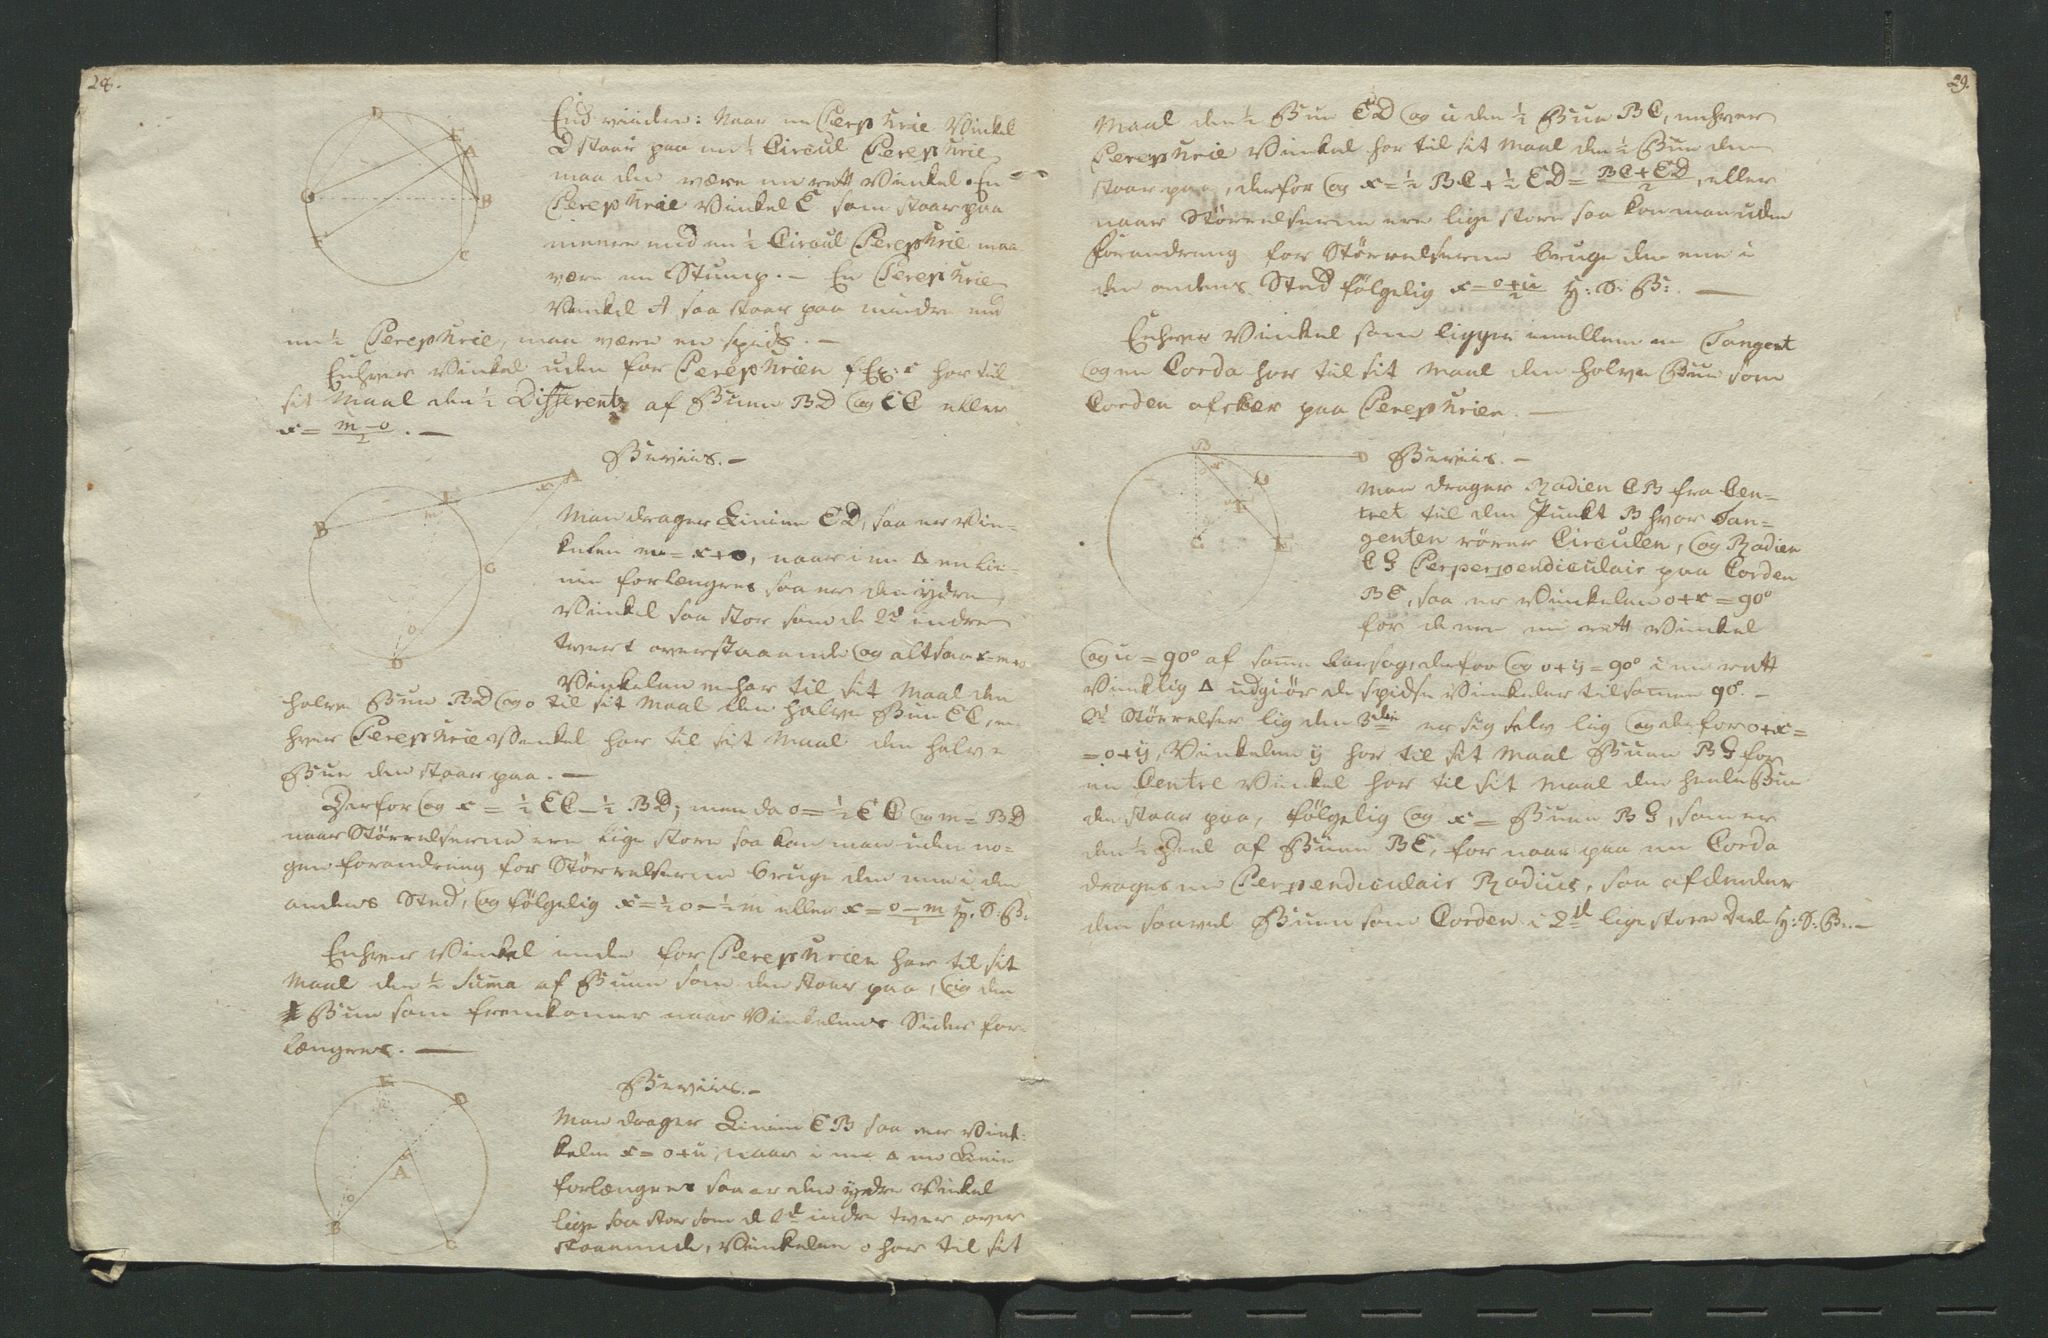 28.
Endvinden: Naar en Perephrie Vinkel
D staar paa en ½ Circul Perephrie,
maa den være en rett Vinkel. En
Perephrie Vinkel E som staar paa
meere end en ½ Circul Perephrie maa
være en Stump. — En Perephrie
Vinkel A saa staar paa mindre end
en ½ Perephrie, maa være en spids. —
Enhver Vinkel uden for Perephrien f Ex: x har til
sit Maal den ½ Differents af Buen BD og EC eller
x = m−o/2 . —
Beviis. —
Man drager Linien ED, saa er Vin-
kelen m = x+o, naar i en Δ en Lin-
nie forlænges saa er den ydre
Vinkel saa stor som de 2d indre
tvert overstaaende og altsaa x=m-o
Vinkelen m har til sit Maal den
halve Buen BD og o til sit Maal den halve Buen EC, en
hver Perephrie Vinkel har til sit Maal den halve
Bue den staar paa. —
Derfor og x = ½ EC − ½ BD; men da o = ½ EC og m = BD
naar Störrelserne ere lige store saa kan man uden no-
gen forandring for Störrelserne bruge den ene i den
andens Sted, og fölgelig x = ½ o − ½ m eller x = o−m/2 H. S. B:
Enhver Vinkel inden for Perephrien har til sit
Maal den ½ Suma af Buen som den staar paa, og den
Bue som fremkomer naar Vinkelens Sider for-
længes. —
Beviis. —
Man drager Linien EB saa er Vin-
kelen x = o+u, naar i en Δ en Linie
forlænges saa er den ydre Vinkel
lige saa stor som de 2d indre tver over
staaende, Vinkelen o har til sit
29.
Maal den ½ Bue ED og u den ½ Bue BC, enhver
Perephrie Vinkel har til sit Maal den ½ Bue den
staar paa, derfor og x = ½ BC + ½ ED = BC+ED/2, eller
naar Störrelserne ere lige store saa kan man uden
forandring for Störrelserne bruge den ene i
den andens Sted fölgelig x = o+u/2 H: S: B: —
Enhver Vinkel som ligger imellem en Tangent
og en Corda har til sit Maal den halve Bue som
Corden afskær paa Perephrien. —
Beviis. —
Man drager Radien CB fra Cen-
tret til den Punkt B hvor Tan-
genten rörer Circulen, og Radien
CG Perperpendiculair paa Corden
BE, saa er Vinkelen o+x = 90°
for denne en rett Vinkel
og u = 90° af samme Aarsag, derfor og o+y = 90° i en rett
Vinklig Δ udgiör de spidse Vinkeler tilsamen 90°. —
2d Störrelser lig den 3die er sig selv lig og derfor o+x =
= o+y, Vinkelen y har til sit Maal Buen BG for
en Centel Vinkel har til sit Maal den heele Bue
den staar paa, fölgelig og x = Buen BG, som er
den ½ Deel af Buen BE, for naar paa en Corda
drages en Perpendiculair Radius, saa afdeeler
den saavel Buen som Corden i 2d lige store Deele H: S: B: —